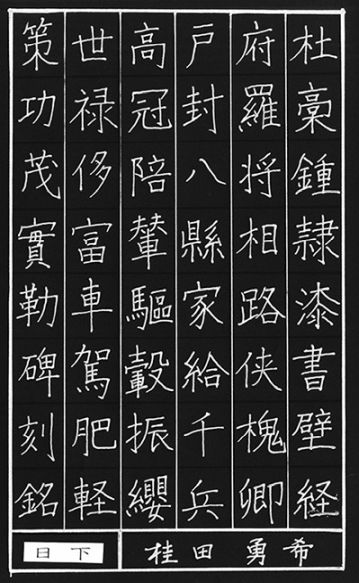 杜稾鍾隷漆書壁経
府羅将相路侠槐卿
戸封八縣家給千兵
高冠陪輦驅轂振纓
世禄侈富車駕肥軽
策功茂實勒碑刻銘
日下
桂田勇希